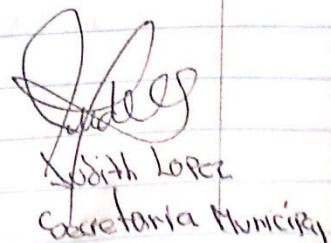 Judith Lopez
Secretaria Municipal